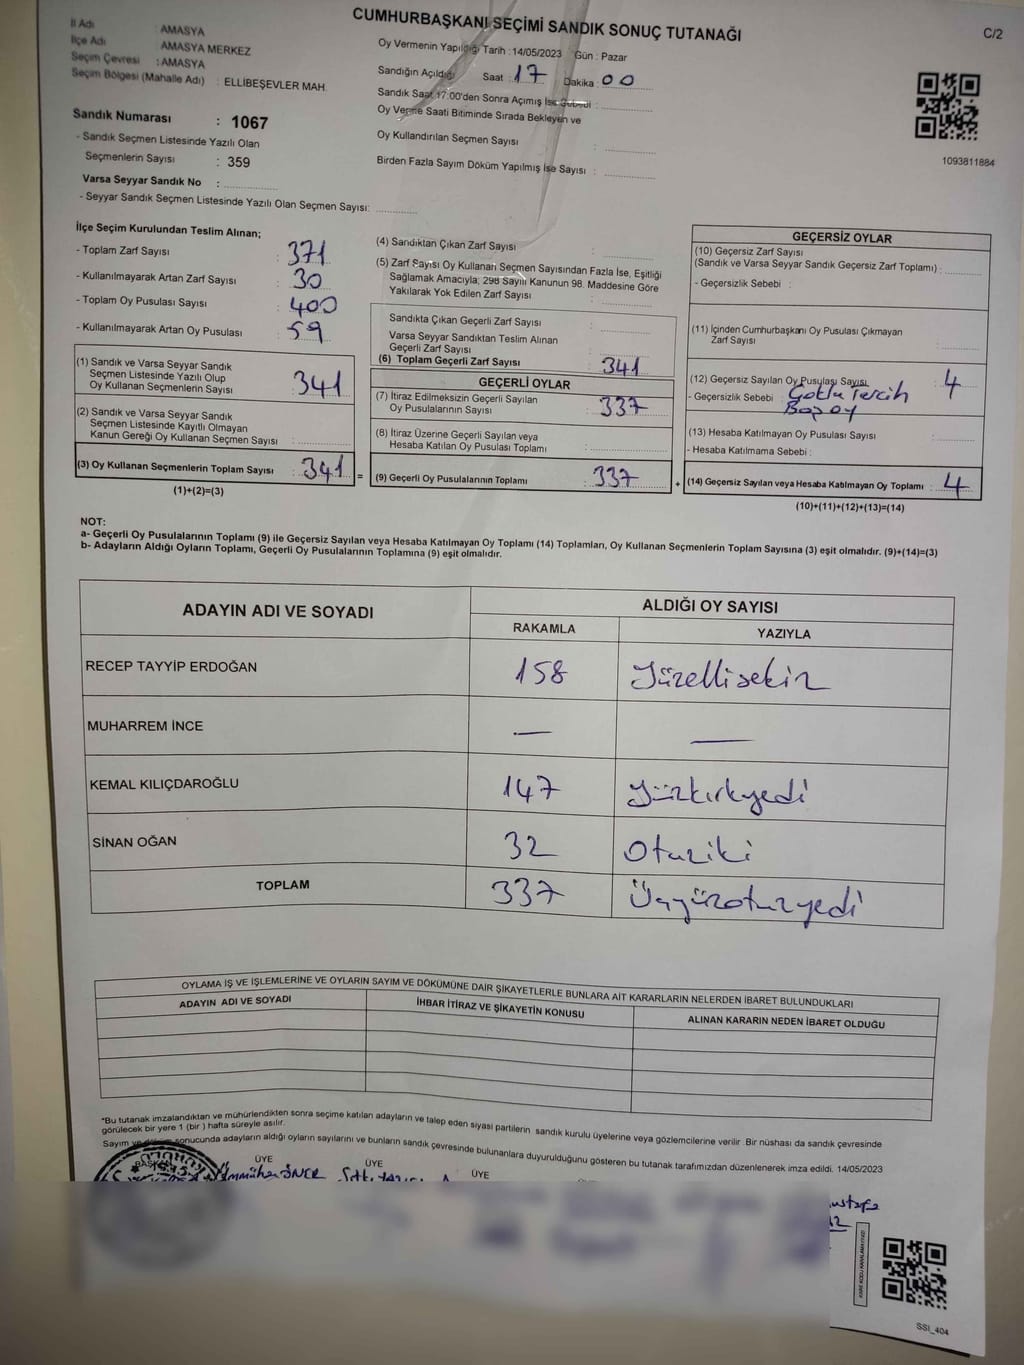 CUMHURBAŞKANI SEÇİMİ SANDIK SONUÇ TUTANAĞI
C/2
İl Adı : AMASYA
İlçe Adı : AMASYA MERKEZ
Seçim Çevresi : AMASYA
Seçim Bölgesi (Mahalle Adı) : ELLİBEŞEVLER MAH.
Sandık Numarası : 1067
- Sandık Seçmen Listesinde Yazılı Olan
Seçmenlerin Sayısı : 359
Varsa Seyyar Sandık No :
- Seyyar Sandık Seçmen Listesinde Yazılı Olan Seçmen Sayısı:
Oy Vermenin Yapıldığı Tarih : 14/05/2023 Gün : Pazar
Sandığın Açıldığı Saat : 17 Dakika : 00
Sandık Saat 17:00'den Sonra Açımış İse Sebebi :
Oy Verme Saati Bitiminde Sırada Bekleyen ve
Oy Kullandırılan Seçmen Sayısı :
Birden Fazla Sayım Döküm Yapılmış İse Sayısı :
1093811884
İlçe Seçim Kurulundan Teslim Alınan;
- Toplam Zarf Sayısı : 371
- Kullanılmayarak Artan Zarf Sayısı : 30
- Toplam Oy Pusulası Sayısı : 400
- Kullanılmayarak Artan Oy Pusulası : 59
(1) Sandık ve Varsa Seyyar Sandık
Seçmen Listesinde Yazılı Olup
Oy Kullanan Seçmenlerin Sayısı : 341
(2) Sandık ve Varsa Seyyar Sandık
Seçmen Listesinde Kayıtlı Olmayan
Kanun Gereği Oy Kullanan Seçmen Sayısı :
(3) Oy Kullanan Seçmenlerin Toplam Sayısı : 341 =
(1)+(2)=(3)
(4) Sandıktan Çıkan Zarf Sayısı :
(5) Zarf Sayısı Oy Kullanan Seçmen Sayısından Fazla İse, Eşitliği
Sağlamak Amacıyla; 298 Sayılı Kanunun 98. Maddesine Göre
Yakılarak Yok Edilen Zarf Sayısı :
Sandıkta Çıkan Geçerli Zarf Sayısı :
Varsa Seyyar Sandıktan Teslim Alınan
Geçerli Zarf Sayısı :
(6) Toplam Geçerli Zarf Sayısı : 341
GEÇERLİ OYLAR
(7) İtiraz Edilmeksizin Geçerli Sayılan
Oy Pusulalarının Sayısı : 337
(8) İtiraz Üzerine Geçerli Sayılan veya
Hesaba Katılan Oy Pusulası Toplamı :
(9) Geçerli Oy Pusulalarının Toplamı : 337 +
GEÇERSİZ OYLAR
(10) Geçersiz Zarf Sayısı
(Sandık ve Varsa Seyyar Sandık Geçersiz Zarf Toplamı) :
- Geçersizlik Sebebi :
(11) İçinden Cumhurbaşkanı Oy Pusulası Çıkmayan
Zarf Sayısı :
(12) Geçersiz Sayılan Oy Pusulası Sayısı : 4
- Geçersizlik Sebebi : Çoklu Tercih
Boş oy
(13) Hesaba Katılmayan Oy Pusulası Sayısı :
- Hesaba Katılmama Sebebi :
(14) Geçersiz Sayılan veya Hesaba Katılmayan Oy Toplamı : 4
(10)+(11)+(12)+(13)=(14)
NOT:
a- Geçerli Oy Pusulalarının Toplamı (9) ile Geçersiz Sayılan veya Hesaba Katılmayan Oy Toplamı (14) Toplamları, Oy Kullanan Seçmenlerin Toplam Sayısına (3) eşit olmalıdır. (9)+(14)=(3)
b- Adayların Aldığı Oyların Toplamı, Geçerli Oy Pusulalarının Toplamına (9) eşit olmalıdır.
ADAYIN ADI VE SOYADI ALDIĞI OY SAYISI
RAKAMLA YAZIYLA
RECEP TAYYİP ERDOĞAN 158 Yüzellisekiz
MUHARREM İNCE — —
KEMAL KILIÇDAROĞLU 147 Yüzkırkyedi
SİNAN OĞAN 32 Otuziki
TOPLAM 337 Üçyüzotuzyedi
OYLAMA İŞ VE İŞLEMLERİNE VE OYLARIN SAYIM VE DÖKÜMÜNE DAİR ŞİKAYETLERLE BUNLARA AİT KARARLARIN NELERDEN İBARET BULUNDUKLARI
ADAYIN ADI VE SOYADI İHBAR İTİRAZ VE ŞİKAYETİN KONUSU ALINAN KARARIN NEDEN İBARET OLDUĞU
*Bu tutanak imzalandıktan ve mühürlendikten sonra seçime katılan adayların ve talep eden siyasi partilerin sandık kurulu üyelerine veya gözlemcilerine verilir. Bir nüshası da sandık çevresinde
görülecek bir yere 1 (bir) hafta süreyle asılır.
Sayım ve döküm sonucunda adayların aldığı oyların sayılarını ve bunların sandık çevresinde bulunanlara duyurulduğunu gösteren bu tutanak tarafımızdan düzenlenerek imza edildi. 14/05/2023
BAŞKAN ÜYE ÜYE ÜYE
SSİ_404